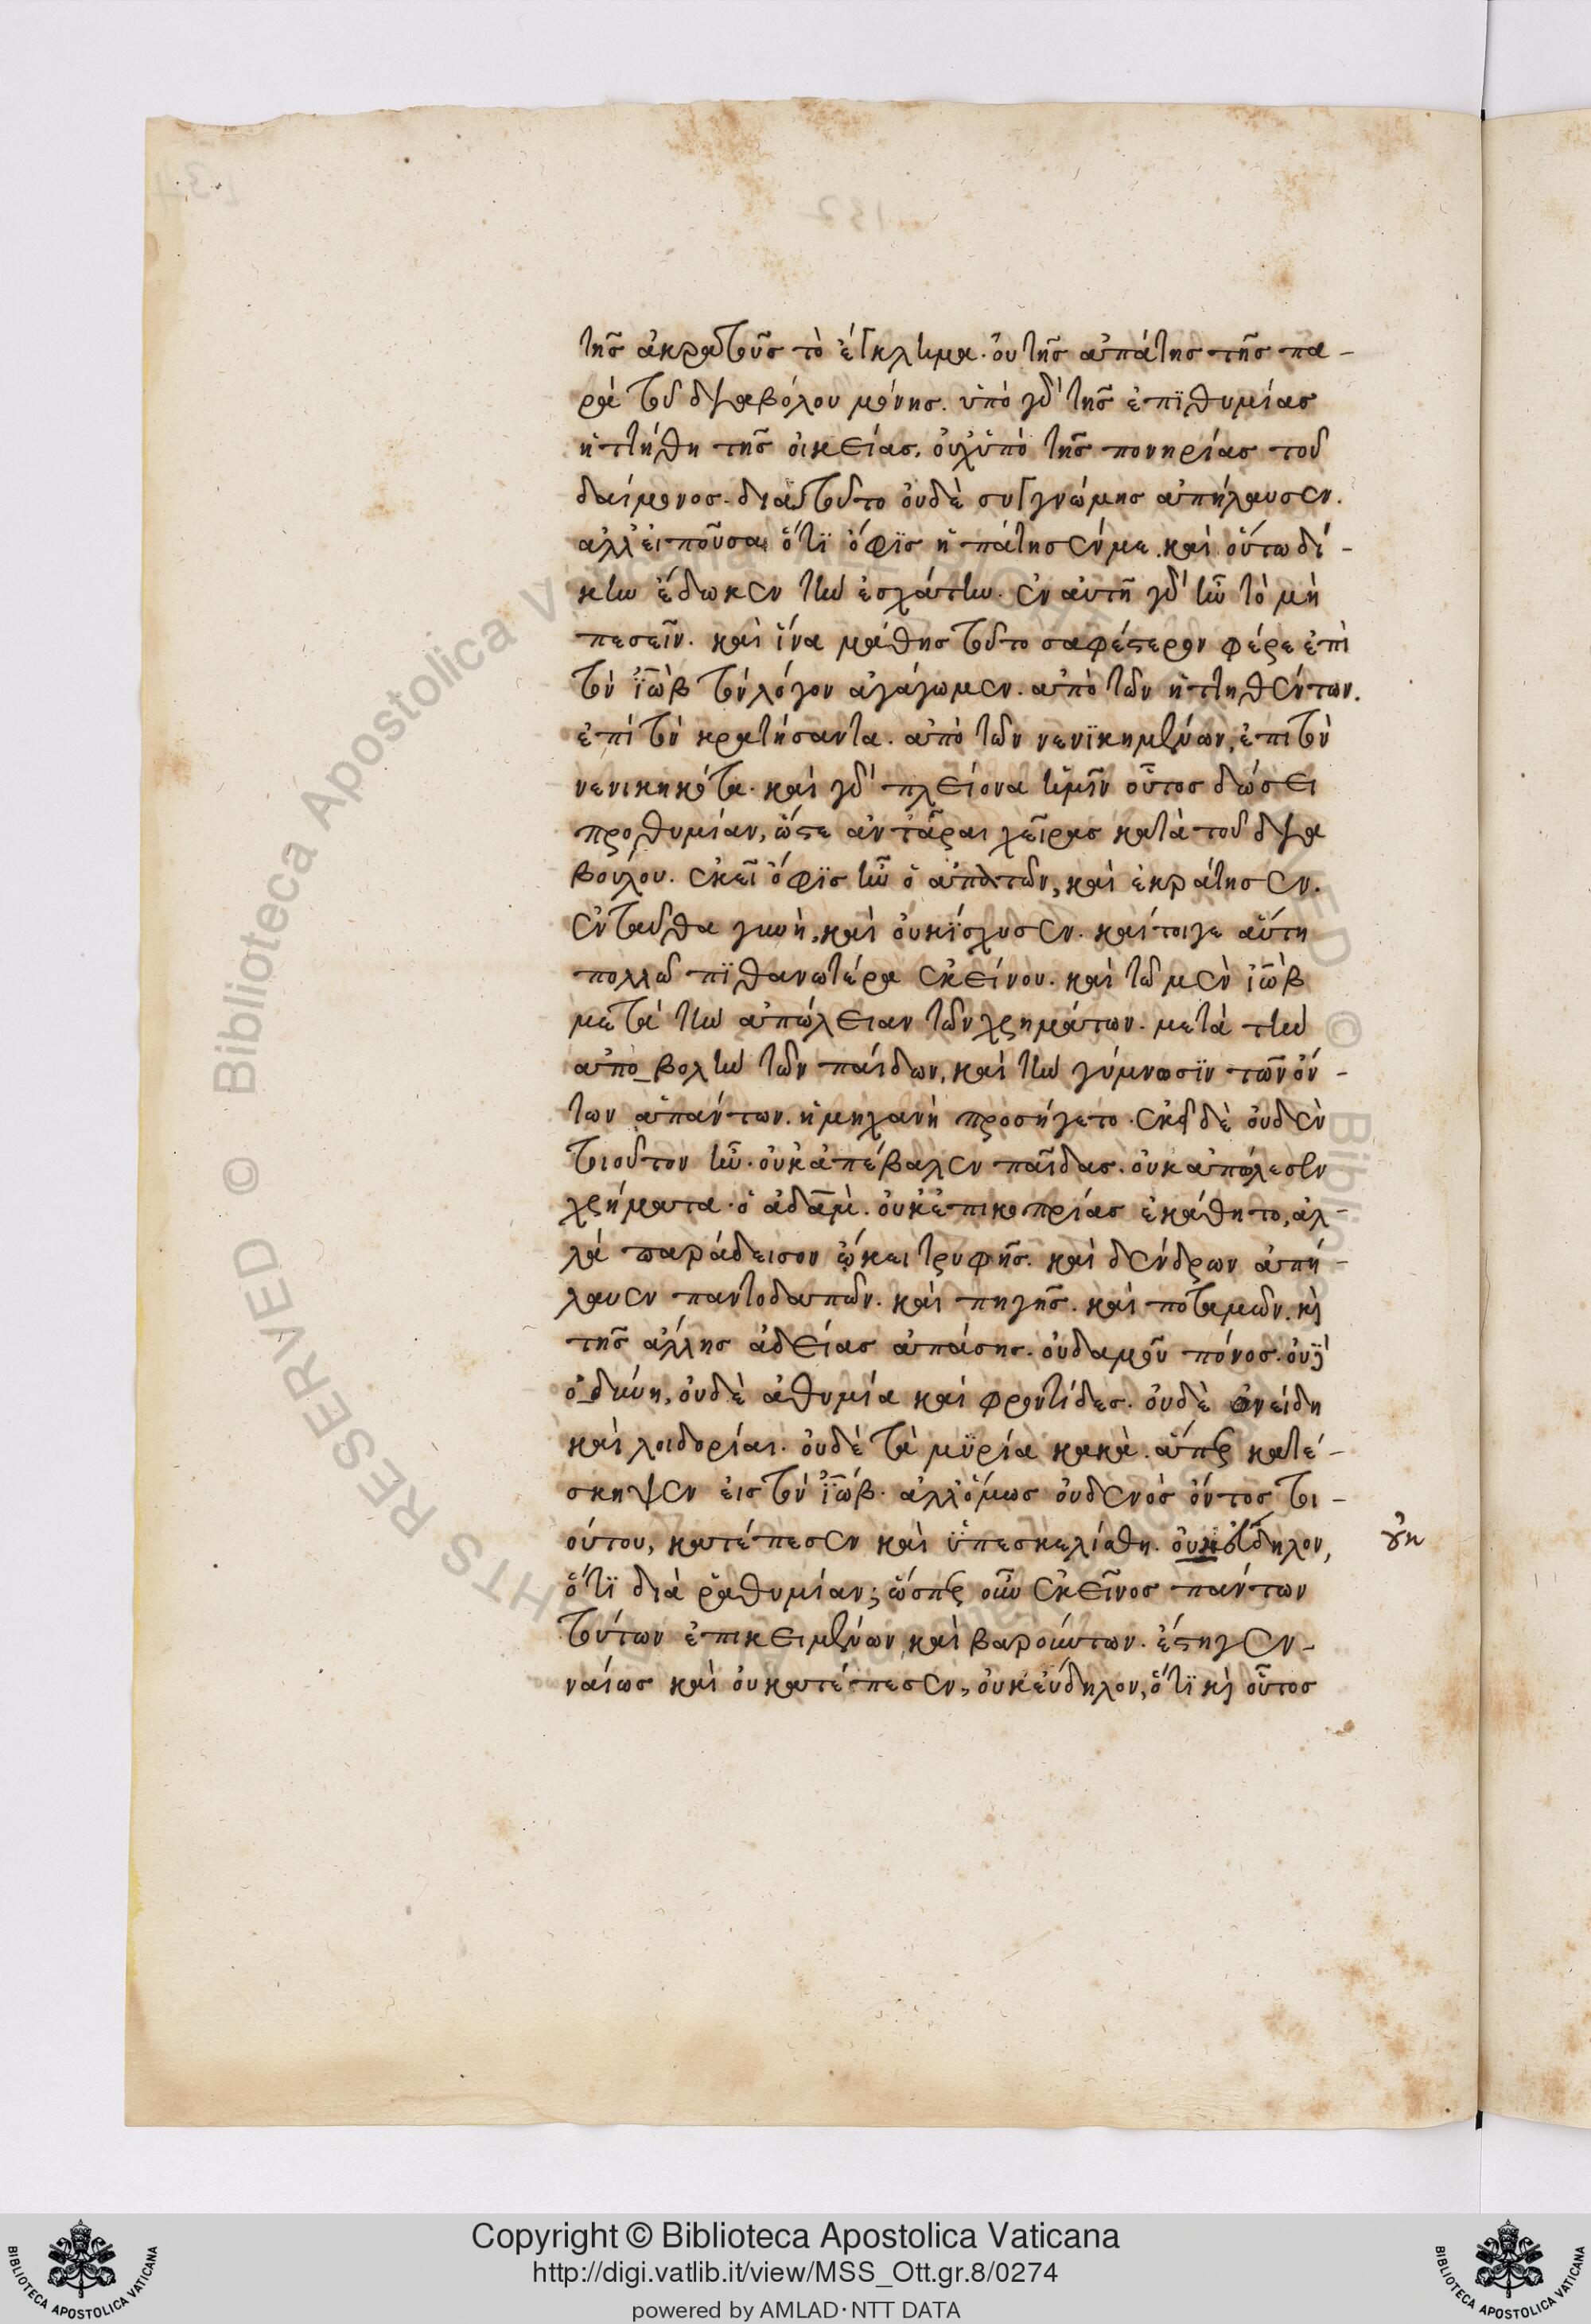 τῆς ἀκροατοῦς τὸ ἔγκλημα. οὐ τῆς ἀπάτης τῆς πα-
ρὰ τοῦ διαβόλου μόνης. ὑπὸ γὰρ τῆς ἐπϊθυμίας
ἡττήθη τῆς οἰκείας. οὐχ ὑπὸ τῆς πονηρίας τοῦ
δαίμονος. διατοῦτο οὐδὲ συγγνώμης ἀπήλαυσεν.
ἀλλ' εἰποῦσα ὅτϊ ὄφϊς ἠπάτησέν με. καὶ οὕτω δί-
κην ἔδωκεν τὴν ἐσχάτην. ἐν αὐτῇ γὰρ ἦν τὸ μὴ
πεσεῖν. καὶ ἵνα μάθης τοῦτο σαφέστερον φέρε ἐπὶ
τὸν ἰὼβ τὸν λόγον ἀγάγωμεν. ἀπὸ τῶν ἡττηθέντων.
ἐπὶ τὸν κρατήσαντα. ἀπὸ τῶν νενϊκημένων, ἐπι τὸν
νενικηκότα. καὶ γὰρ πλείονα ἡμῖν οὗτος δώσει
προθυμίαν, ὥστε ἀντᾶραι χεῖρας κατὰ τοῦ δια
βούλου. ἐκεῖ ὄφϊς ἦν ὁ ἀπατῶν, καὶ ἐκράτησεν.
ἐνταῦθα γυνὴ, καὶ οὐκ ἴσχυσεν. καίτοιγε αὕτη
πολλῶ πϊθανωτέρα ἐκείνου. καὶ τῶ μὲν ἰὼβ
μετὰ τὴν ἀπώλειαν τῶν χρημάτων. μετὰ τὴν
ἀπο_βολὴν τῶν παίδων, καὶ τὴν γύμνωσϊν τῶν ὄν-
των ἁπάντων. ἡ μηχανὴ προσήγετο. ἐκεῖ δὲ οὐδὲν
τοιοῦτον ἦν. οὐκ ἀπέβαλεν παῖδας. οὐκ ἀπώλεσεν
χρήματα. ὁ ἀδὰμ. οὐκ ἐπι κοπρίας ἐκάθητο, ἀλ-
λὰ παράδεισον ᾤκει τρυφῆς. καὶ δένδρων ἀπή-
λαυεν παντοδαπῶν. καὶ πηγῆς. καὶ ποταμῶν. κὶ
τῆς ἄλλης ἀδείας ἁπάσης. οὐδαμοῦ πόνος. οὐδὲ
ὀ_δύνη, οὐδὲ ἀθυμία καὶ φροντίδες. οὐδὲ ὀνείδη
καὶ λοιδορίαι. οὐδὲ τὰ μϋρία κακὰ. ἅπερ κατέ-
σκηψεν εἰς τὸν ἰὼβ. ἀλλ' ὅμως οὐδενὸς ὄντος τοι-
ούτου, κατέπεσεν καὶ ὑπεσκελίσθη. δηλον,
ὅτϊ διὰ ῥαθυμίαν; ὥσπερ οὖν ἐκεῖνος πάντων
τούτων ἐπικειμένων καὶ βαρούντων. ἔστη γεν-
ναίως καὶ οὐ κατέπεσεν, οὐκ εὔδηλον, ὅτϊ κὶ οὗτος
Copyright © Biblioteca Apostolica Vaticana
http://digi.vatlib.it/view/MSS_Ott.gr.8/0274
powered by AMLAD·NTT DATA
BIBLIOTECA APOSTOLICA VATICANA
BIBLIOTECA APOSTOLICA VATICANA